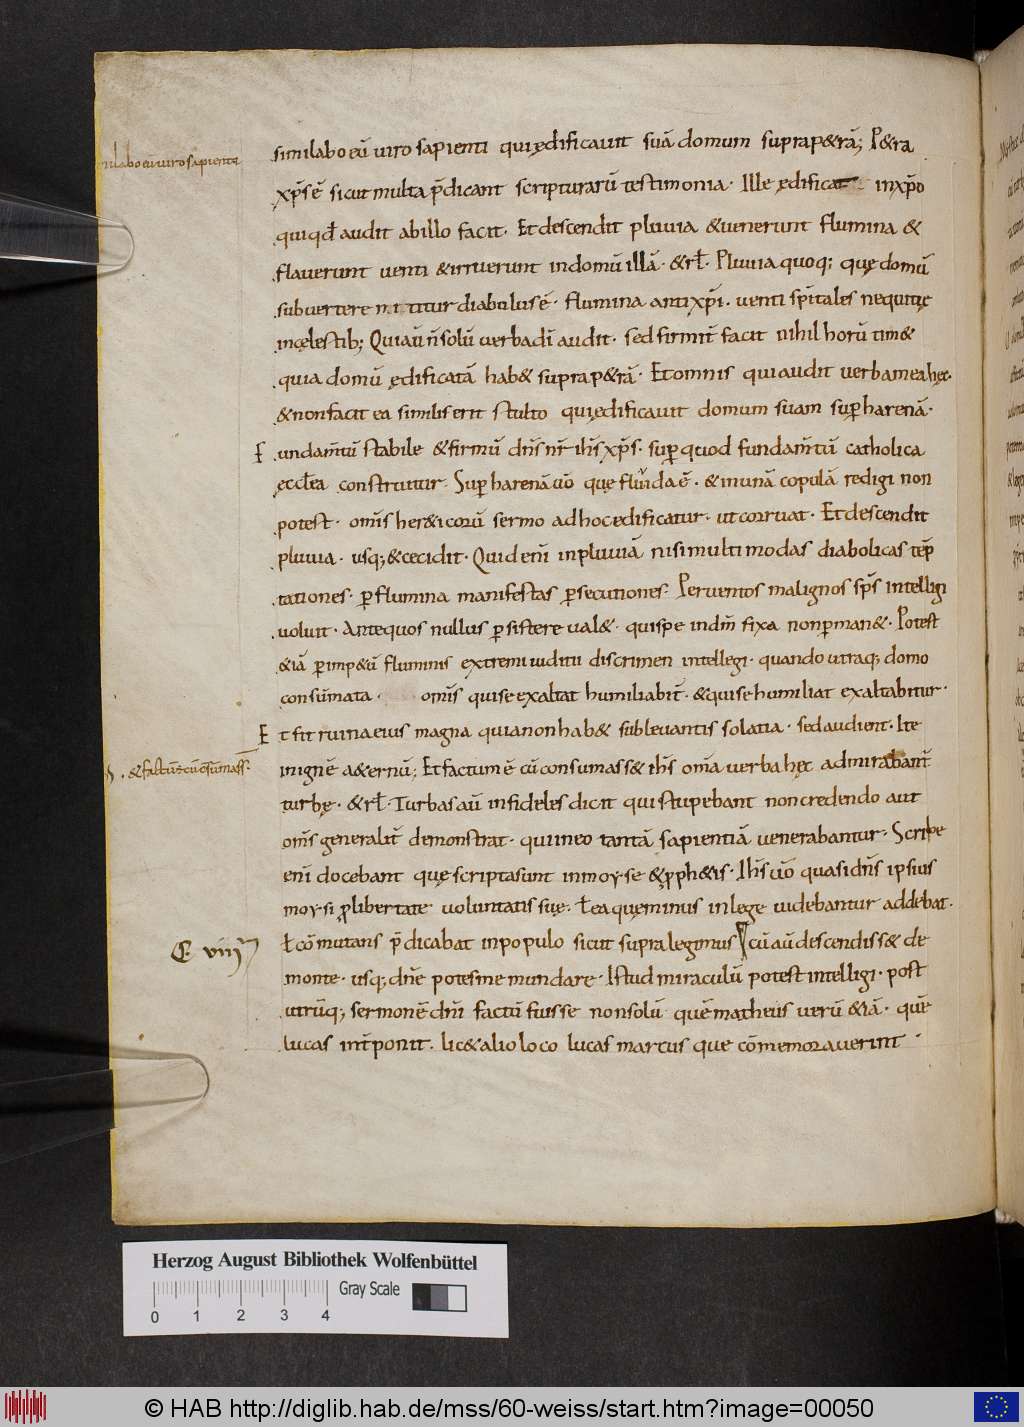 similabo eū viro sapienti qui ędificavit suā domum supra p&rā; P&ra
xp̄s ē sicut multa p̄dicant scripturarū testimonia· Ille ędificat in xp̄o
qui qđ audit ab illo facit· Et descendit pluvia & venerunt flumina &
flaverunt venti & irruerunt in domū illā· & rł· Pluvia quoq; quę domū
subvertere nititur diabulus ē· flumina antixp̄i· venti sp̄itales nequitię
in cęlestib; Qui aū n̄ solū verba dn̄i audit· sed firmit̄ facit nihil horū tim&
quia domū ędificatā hab& supra p&rā· Et omnis qui audit verba mea hęc·
& non facit ea similis erit stulto qui ędificavit domum suam sup̄ harenā·
Fundam̄tū stabile & firmū dn̄s nr̄ ih̄s xp̄s· sup̄ quod fundam̄tū catholica
eccl̄ea construitur· Sup̄ harenā ū̄o quę fluvida ē· & in unā copulā redigi non
potest· om̄is her&icorū sermo ad hoc ędificatur· ut corruat· Et descendit
pluvia· usq; & cecidit· Quid eni̅ in pluviā nisi multimodas diabolicas tēp
tationes· p̄ flumina manifestas p̄secutiones· Per ventos malignos sp̄s intelligi
voluit· Ante quos nullus p̄sistere val&· qui spe in dn̄o fixa non p̄man&· Potest
&iā p̄ imp&ū fluminis extremi iuditii discrimen intellegi· quando utraq; domo
consūmata· om̄is qui se exaltat humiliabit̄· & qui se humiliat exaltabitur·
Et fit ruina eius magna quia non hab& sublevantis solatia· sed audient· Ite
in ignē a&ernū; Et factum ē cū consumass& ih̄s om̄a verba hęc admirabant̄
turbę· & rł· Turbas aū infideles dicit qui stupebant non credendo aut
om̄s generalit̄ demonstrat· qui in eo tantā sapientiā venerabantur· Scribe
eni̅ docebant quę scripta sunt in moyse & p̄ph&is· Ih̄s ū̄o quasi dn̄s ipsius
moysi p̄ libertate voluntatis suę· ł ea quę minus in lege videbantur addebat·
ł com̄utans p̄dicabat in populo sicut supra legimus cū aū descendiss& de
monte· usq; dn̄e potes me mundare· Istud miraculū potest intelligi· post
utrūq; sermonē dn̄i factū fuisse non solū quē matheus verū &iā· quē
lucas int̄ponit· lic& alio loco lucas marcus que cōmemoraverint·
milabo eū viro sapienti
& factū ē cū cōsumass&
C· viiii
Herzog August Bibliothek Wolfenbüttel
Gray Scale
0 1 2 3 4
© HAB http://diglib.hab.de/mss/60-weiss/start.htm?image=00050